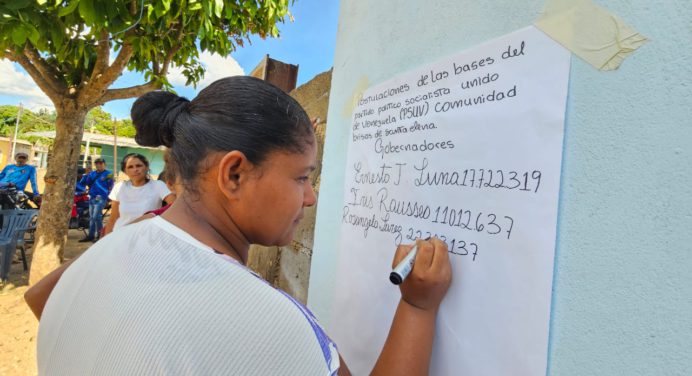 Postulaciones de las bases del
partido partico socialista unido
de Venezuela (PSUV) comunidad
brisas de santa elena.
Gobernadores
Ernesto J. Luna 17.722319
Iris Rausses 11012.637
Rosangela